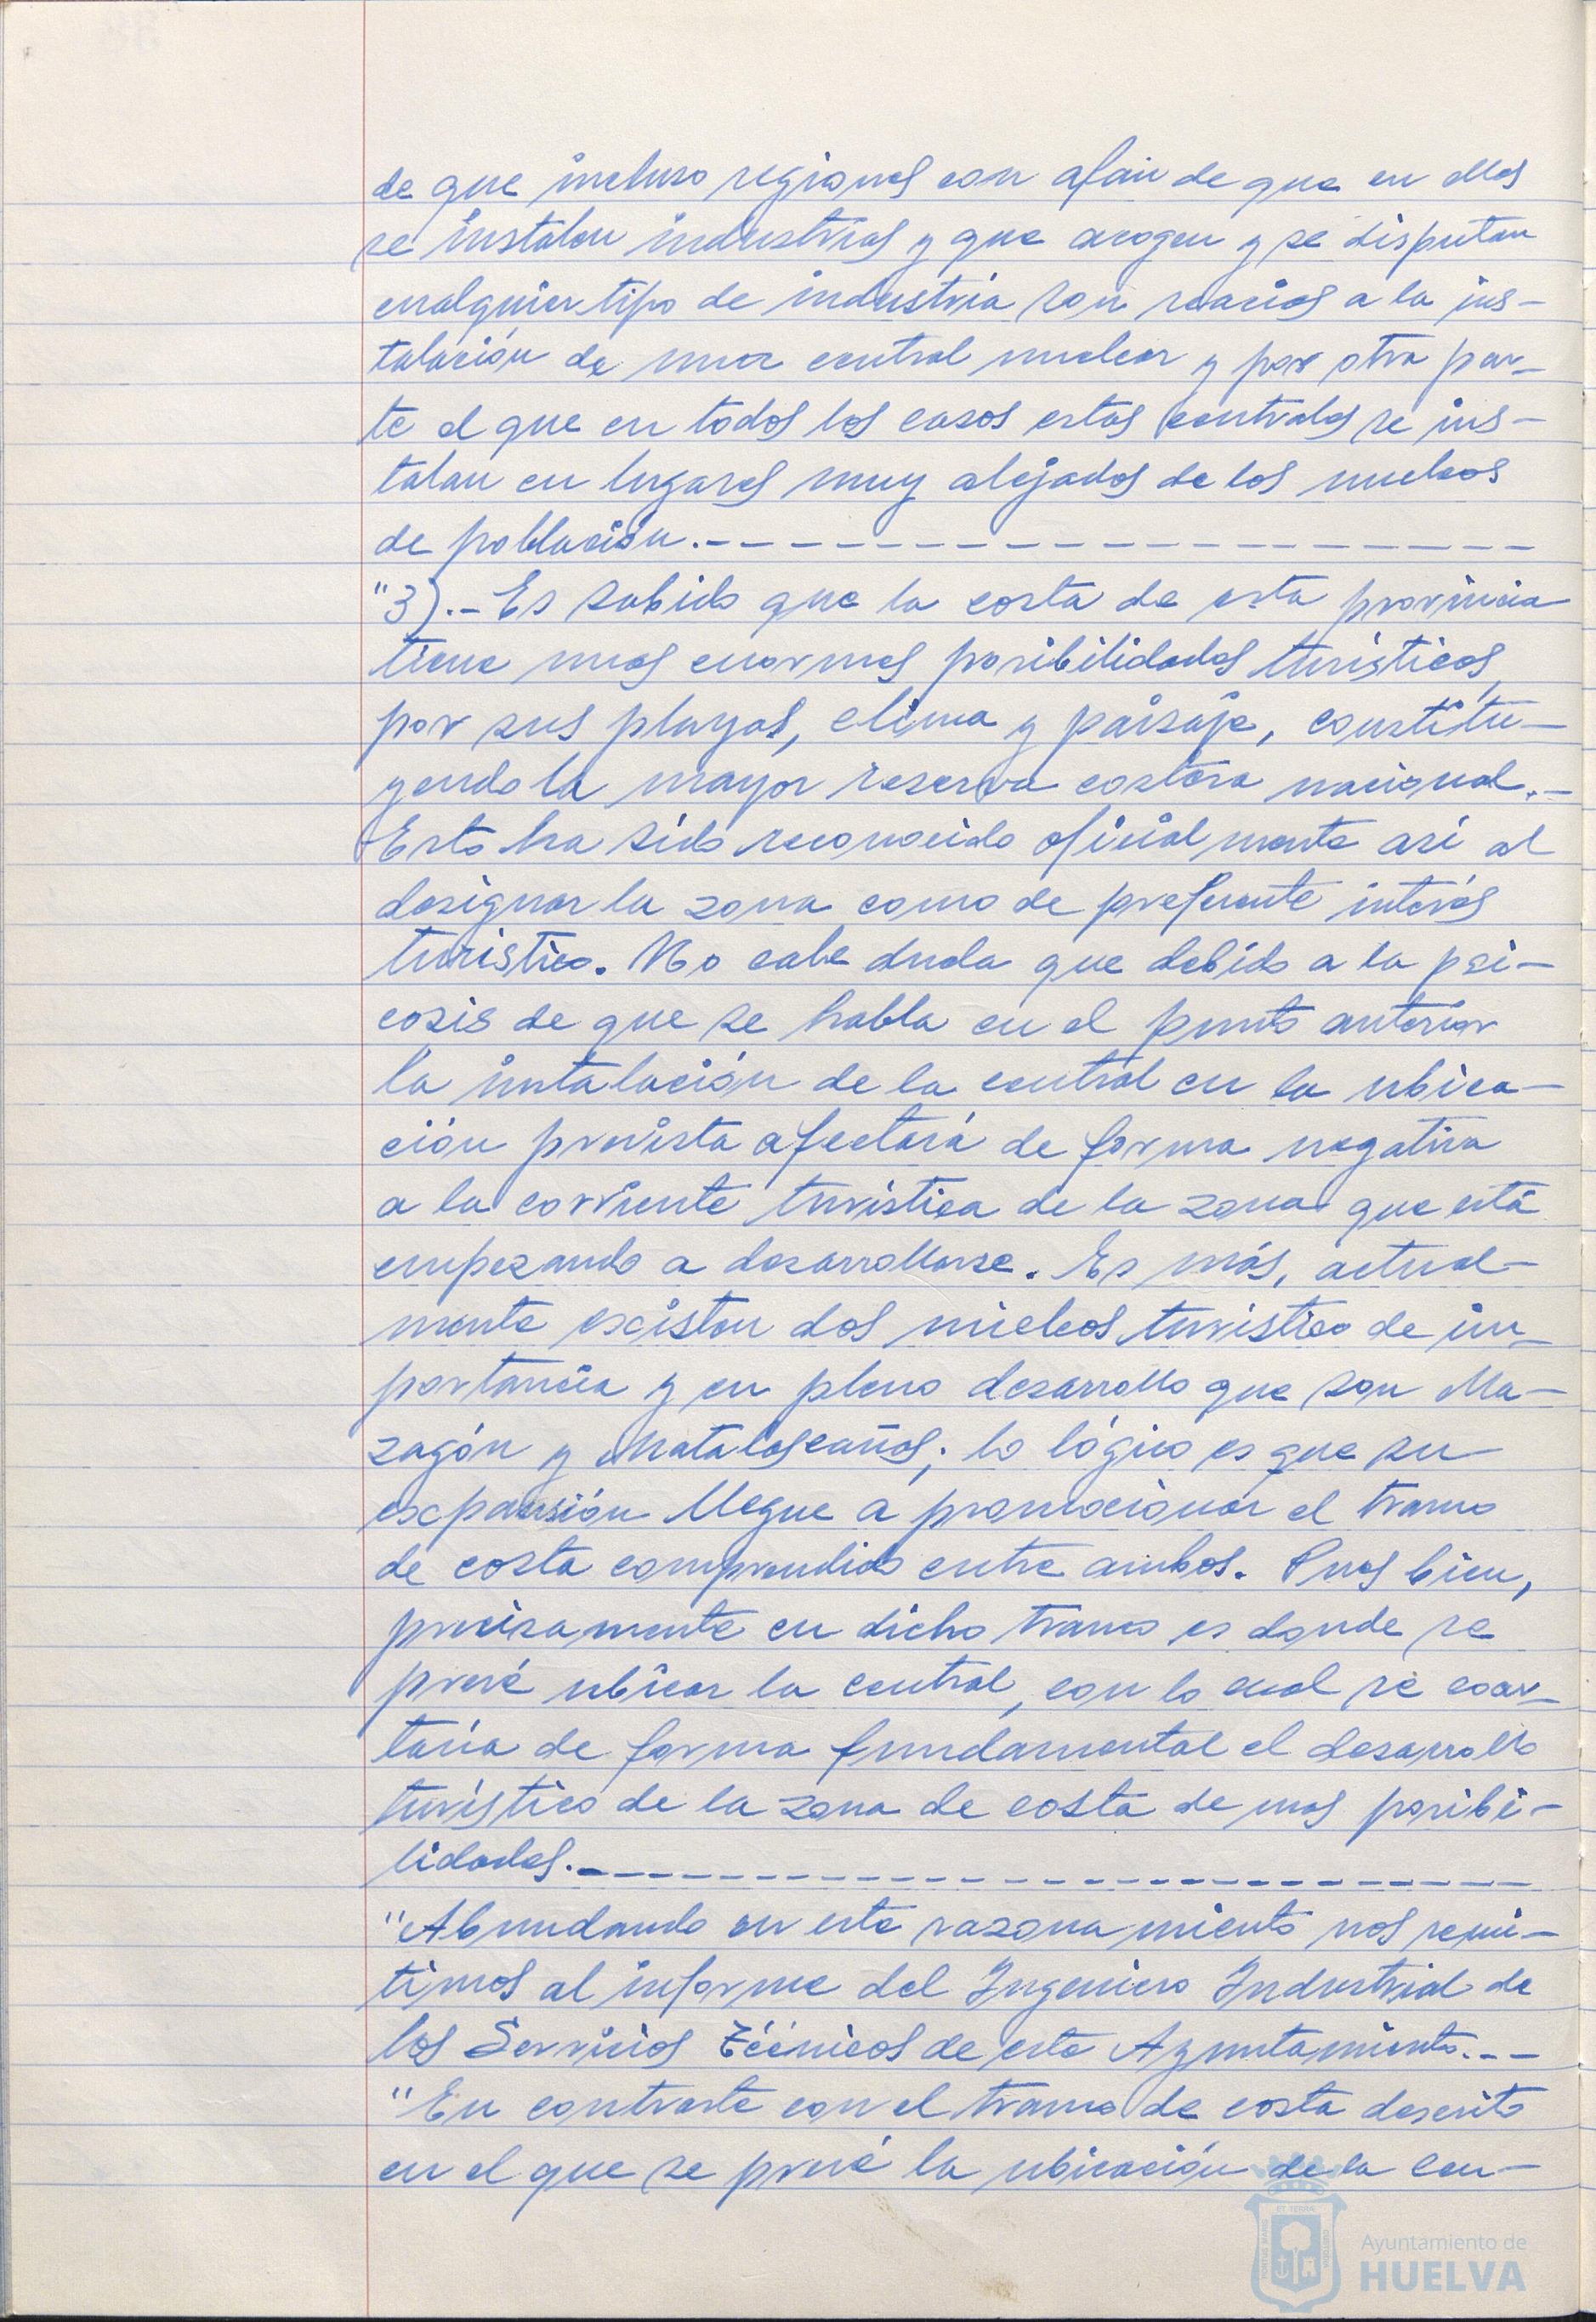 de que incluso regiones con afán de que en ellas
se instalen industrias y que acogen y se disputan
cualquier tipo de industria son reacios a la ins-
talación de una central nuclear y por otra par-
te el que en todos los casos estas centrales se ins-
talan en lugares muy alejados de los nucleos
de población.- - - - - - - - - - - - - - - - - -
"3).- Es sabido que la costa de esta provincia
tiene unas enormes posibilidades turísticas,
por sus playas, clima y paisaje, constitu-
yendo la mayor reserva costera nacional.-
Esto ha sido reconocido oficialmente así al
designar la zona como de preferente interés
turistico. No cabe duda que debido a la psi-
cosis de que se habla en el punto anterior
la instalación de la central en la ubica-
ción prevista afectará de forma negativa
a la corriente turística de la zona que está
empezando a desarrollarse. Es más, actual-
mente existen dos núcleos turistico de im-
portancia y en pleno desarrollo que son Ma-
zagón y Matalascañas; lo lógico es que su
expansión llegue a promocionar el tramo
de costa comprendido entre ambos. Pues bien,
precisamente en dicho tramo es donde se
prevé ubicar la central, con lo cual se coar-
taría de forma fundamental el desarrollo
turístico de la zona de costa de mas posibi-
lidades.- - - - - - - - - - - - - - - - - - - -
"Abundando en este razonamiento nos remi-
timos al informe del Ingeniero Industrial de
los Servicios Técnicos de este Ayuntamiento.- -
"En contraste con el tramo de costa descrito
en el que se prevé la ubicación de la cen-
Ayuntamiento de
HUELVA